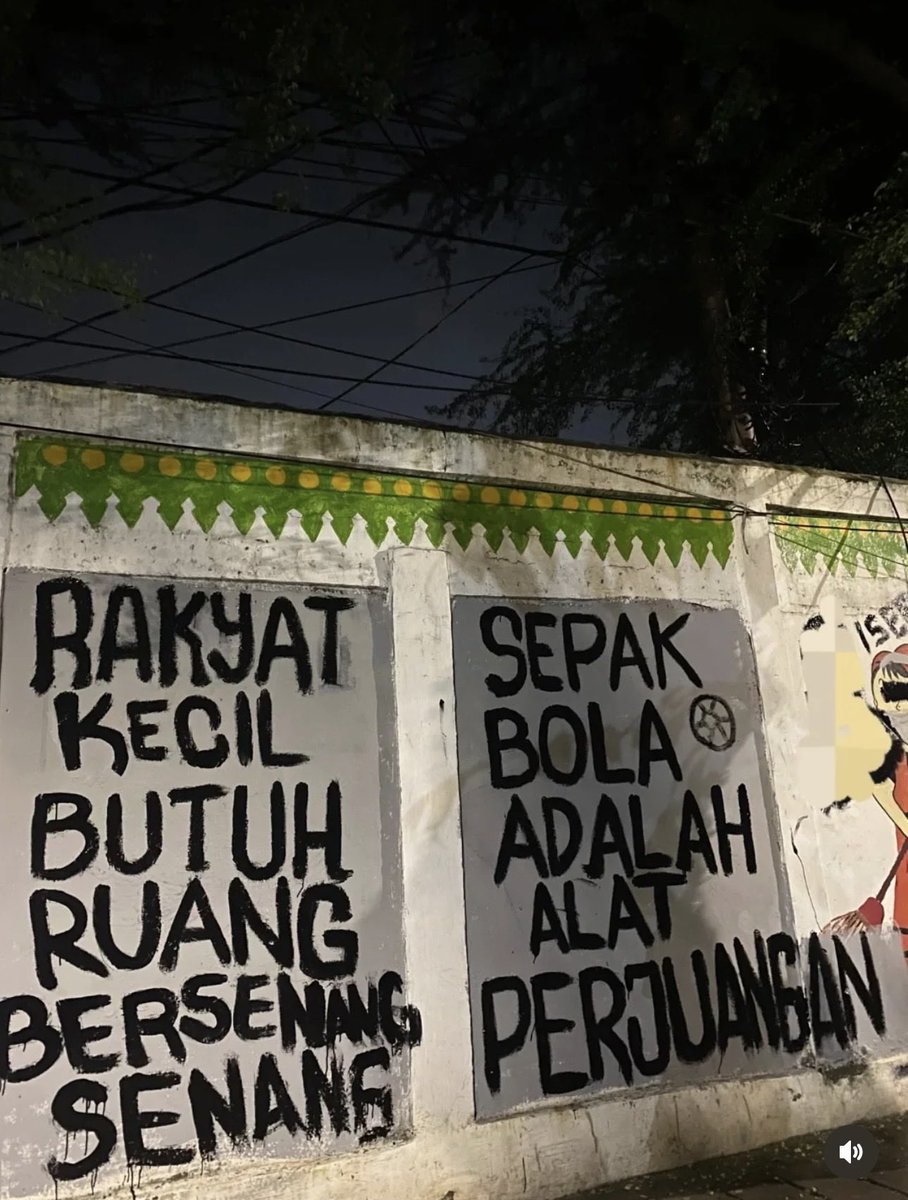 RAKYAT
KECIL
BUTUH
RUANG
BERSENANG
SENANG
SEPAK
BOLA
ADALAH
ALAT
PERJUANGAN